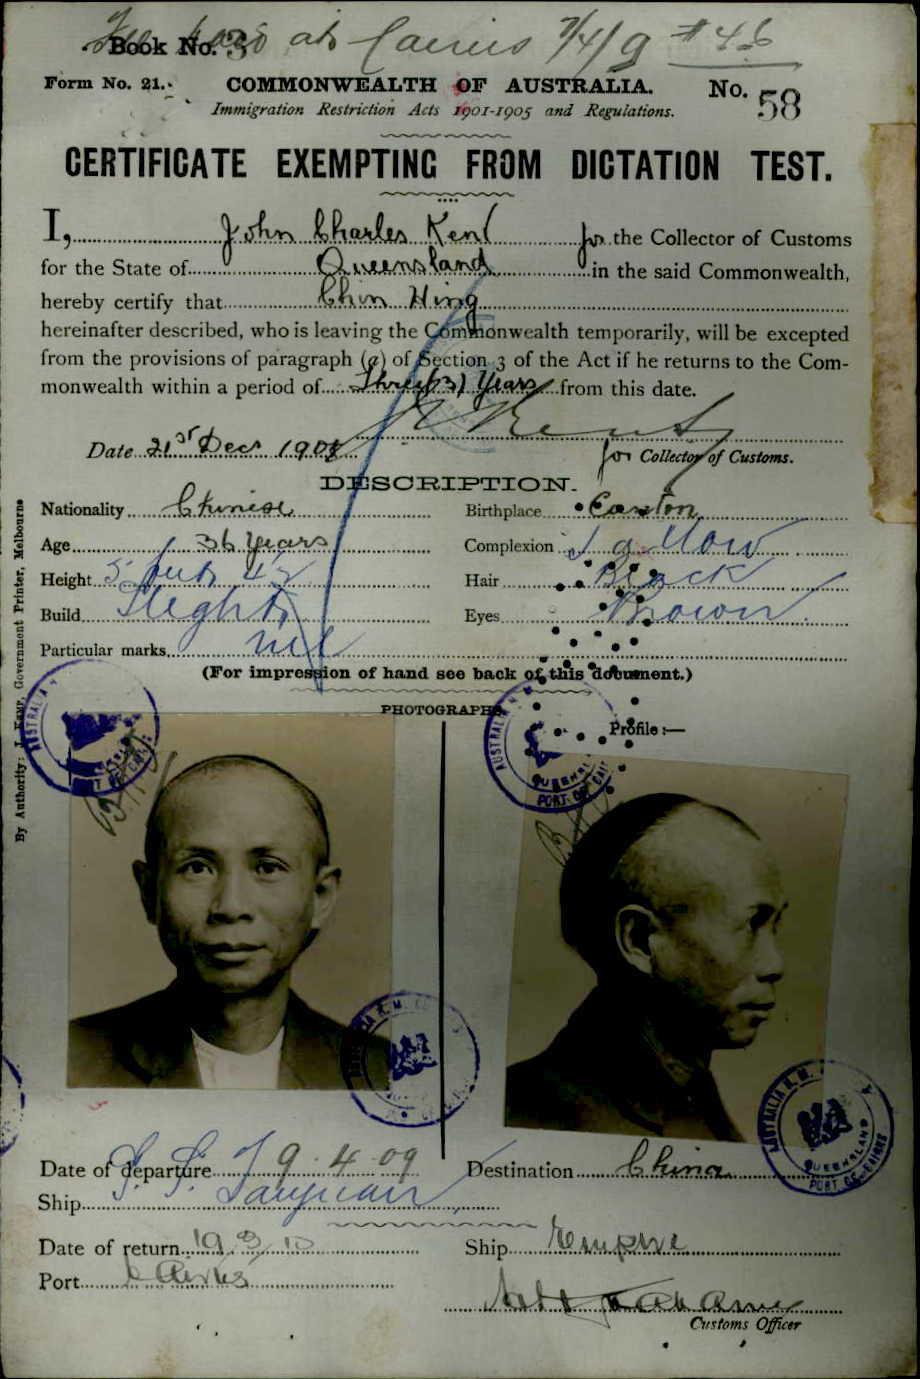 Book No. 3 at Cairns 7/4/9 #46
Form No. 21. COMMONWEALTH OF AUSTRALIA. No. 58
Immigration Restriction Acts 1901-1905 and Regulations.
CERTIFICATE EXEMPTING FROM DICTATION TEST.
I, John Charles Kent for the Collector of Customs
for the State of Queensland in the said Commonwealth,
hereby certify that Chin Hing
hereinafter described, who is leaving the Commonwealth temporarily, will be excepted
from the provisions of paragraph (a) of Section 3 of the Act if he returns to the Com-
monwealth within a period of Three (3) Years from this date.
Kent
Date 21st Decr 1908
for Collector of Customs.
DESCRIPTION.
Nationality Chinese Birthplace Canton
Age 36 Years Complexion Sallow
Height 5 foot 4½ Hair Black
Build Slight Eyes Brown.
Particular marks nil
(For impression of hand see back of this document.)
PHOTOGRAPHS
Profile :—
By Authority: J. Kemp, Government Printer, Melbourne
AUSTRALIA QUEENSLAND PORT OF CAIRNS
Date of departure 9.4.09 Destination China
Ship S. S. Taiyuan
Date of return 19.3.10 Ship Empire
Port Cairns
Customs Officer